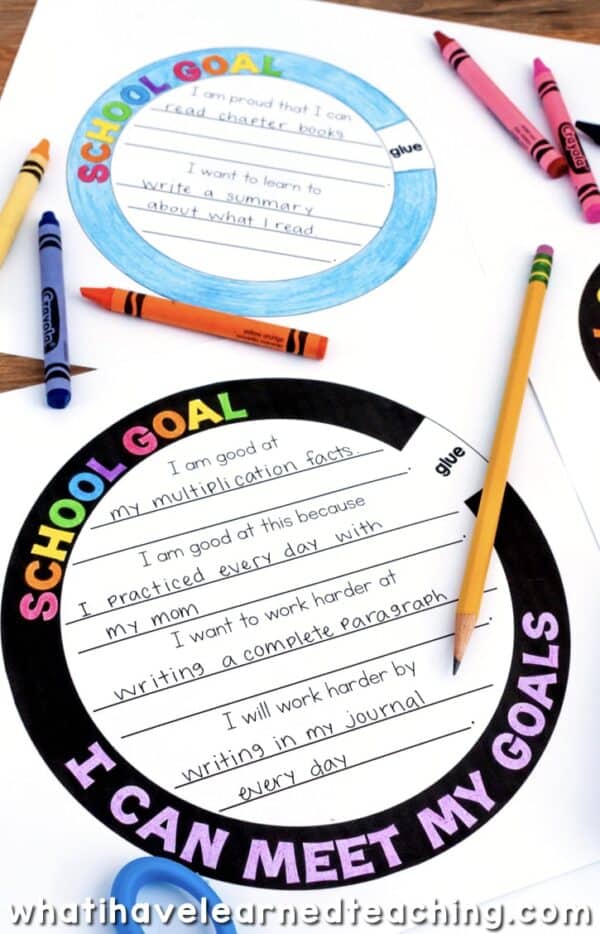 SCHOOL GOAL
I am proud that I can
read chapter books
glue
I want to learn to
write a summary
about what I read
Crayola
Crayola
yellow orange
SCHOOL GOAL
I am good at
my multiplication facts.
glue
I am good at this because
I practiced every day with
my mom
I want to work harder at
writing a complete paragraph
I will work harder by
writing in my journal
every day
I CAN MEET MY GOALS
whatihavelearnedteaching.com